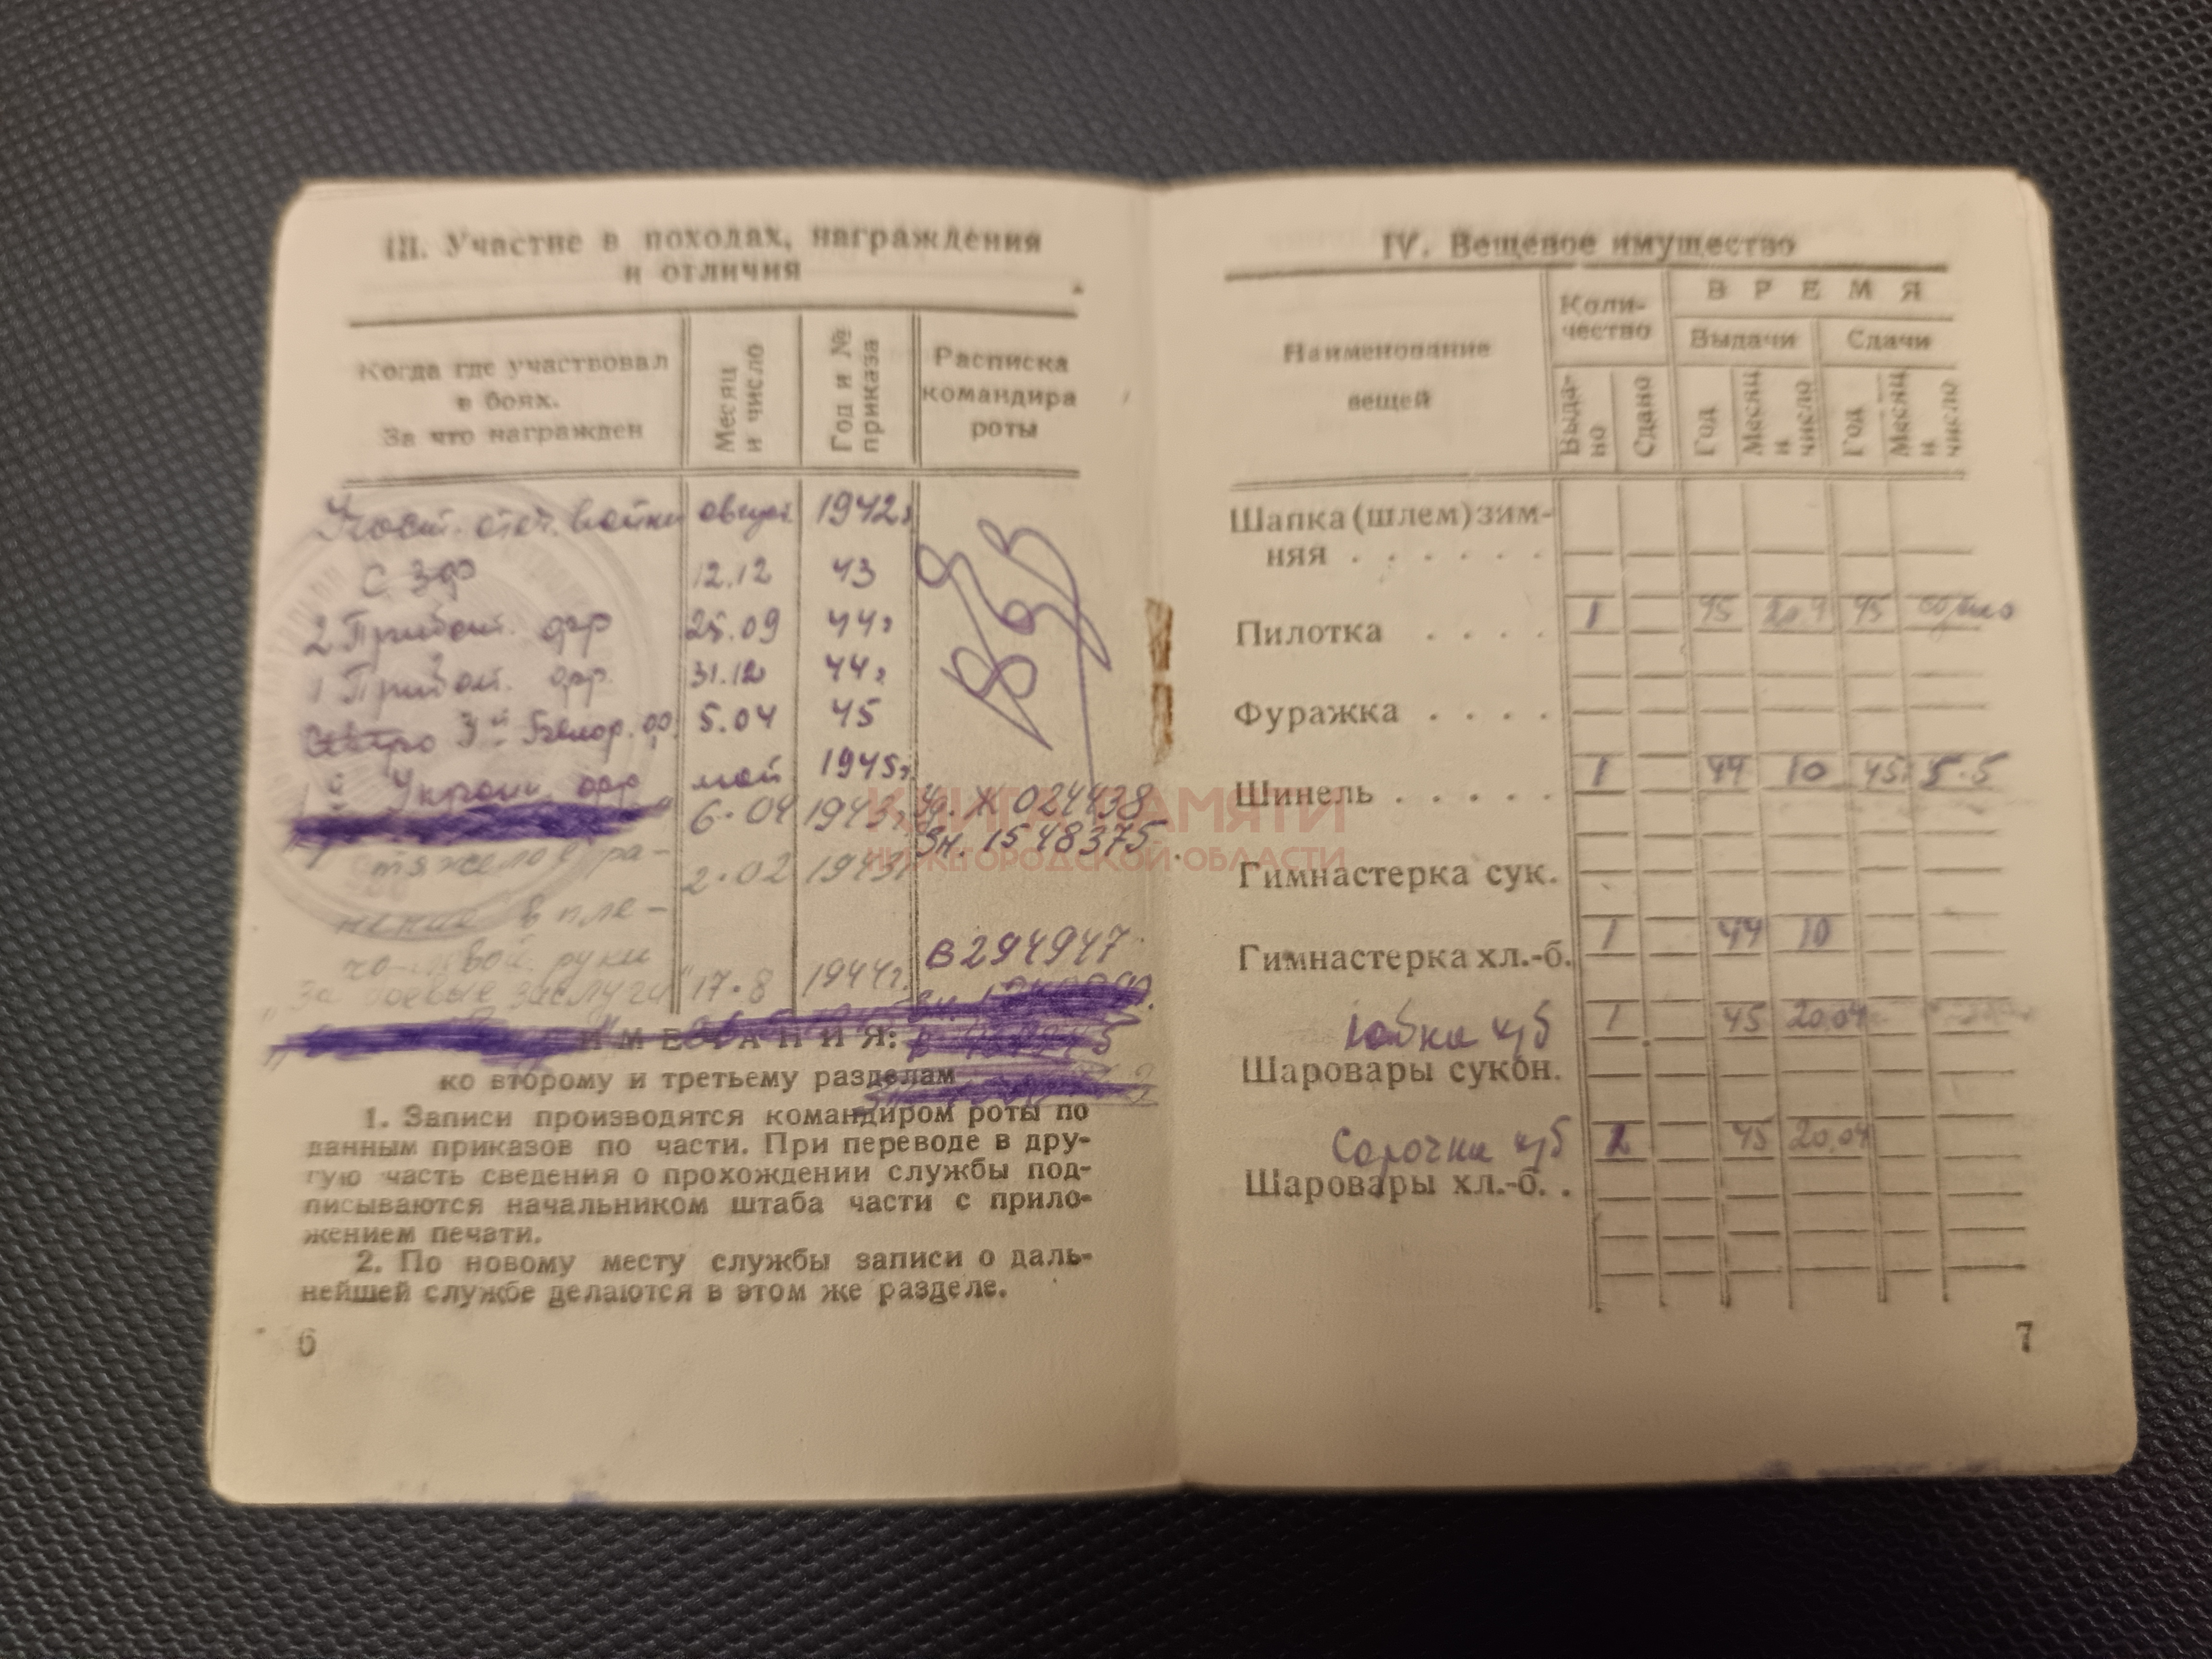 III. Участие в походах, награждения
и отличия
Когда где участвовал
в боях.
За что награжден
Месяц
и число
Год и №
приказа
Расписка
командира
роты
Участ. отеч. войны август 1942г
С З фр 12.12 43
2 Прибалт. фр 25.09 44г
1 Прибалт. фр. 31.12 44г
3й Белор. фр. 5.04 45
1й Украин. фр май 1945г.
6.04 1943г. Уд. Х 024438
Зн. 1548375
тяжелое ра- 2.02 1943г
нение в пле-
чо левой руки
В 294947
"За боевые заслуги" 17.8 1944г.
ко второму и третьему разделам
1. Записи производятся командиром роты по
данным приказов по части. При переводе в дру-
гую часть сведения о прохождении службы под-
писываются начальником штаба части с прило-
жением печати.
2. По новому месту службы записи о даль-
нейшей службе делаются в этом же разделе.
6
IV. Вещевое имущество
Наименование
вещей
Коли-
чество
ВРЕМЯ
Выдачи
Сдачи
Выда-
но
Сдано
Год
Месяц
и
число
Год
Месяц
и
число
Шапка (шлем) зим-
няя . . . . . .
Пилотка . . . . 1 45 20.4 45
Фуражка . . . .
Шинель . . . . . 1 44 10 45 5.5
Гимнастерка сук.
Гимнастерка хл.-б. 1 44 10
Юбка х/б 1 45 20.04
Шаровары сукон.
Сорочки х/б 2 45 20.04
Шаровары хл.-б. .
7
КНИГА ПАМЯТИ
НИЖЕГОРОДСКОЙ ОБЛАСТИ